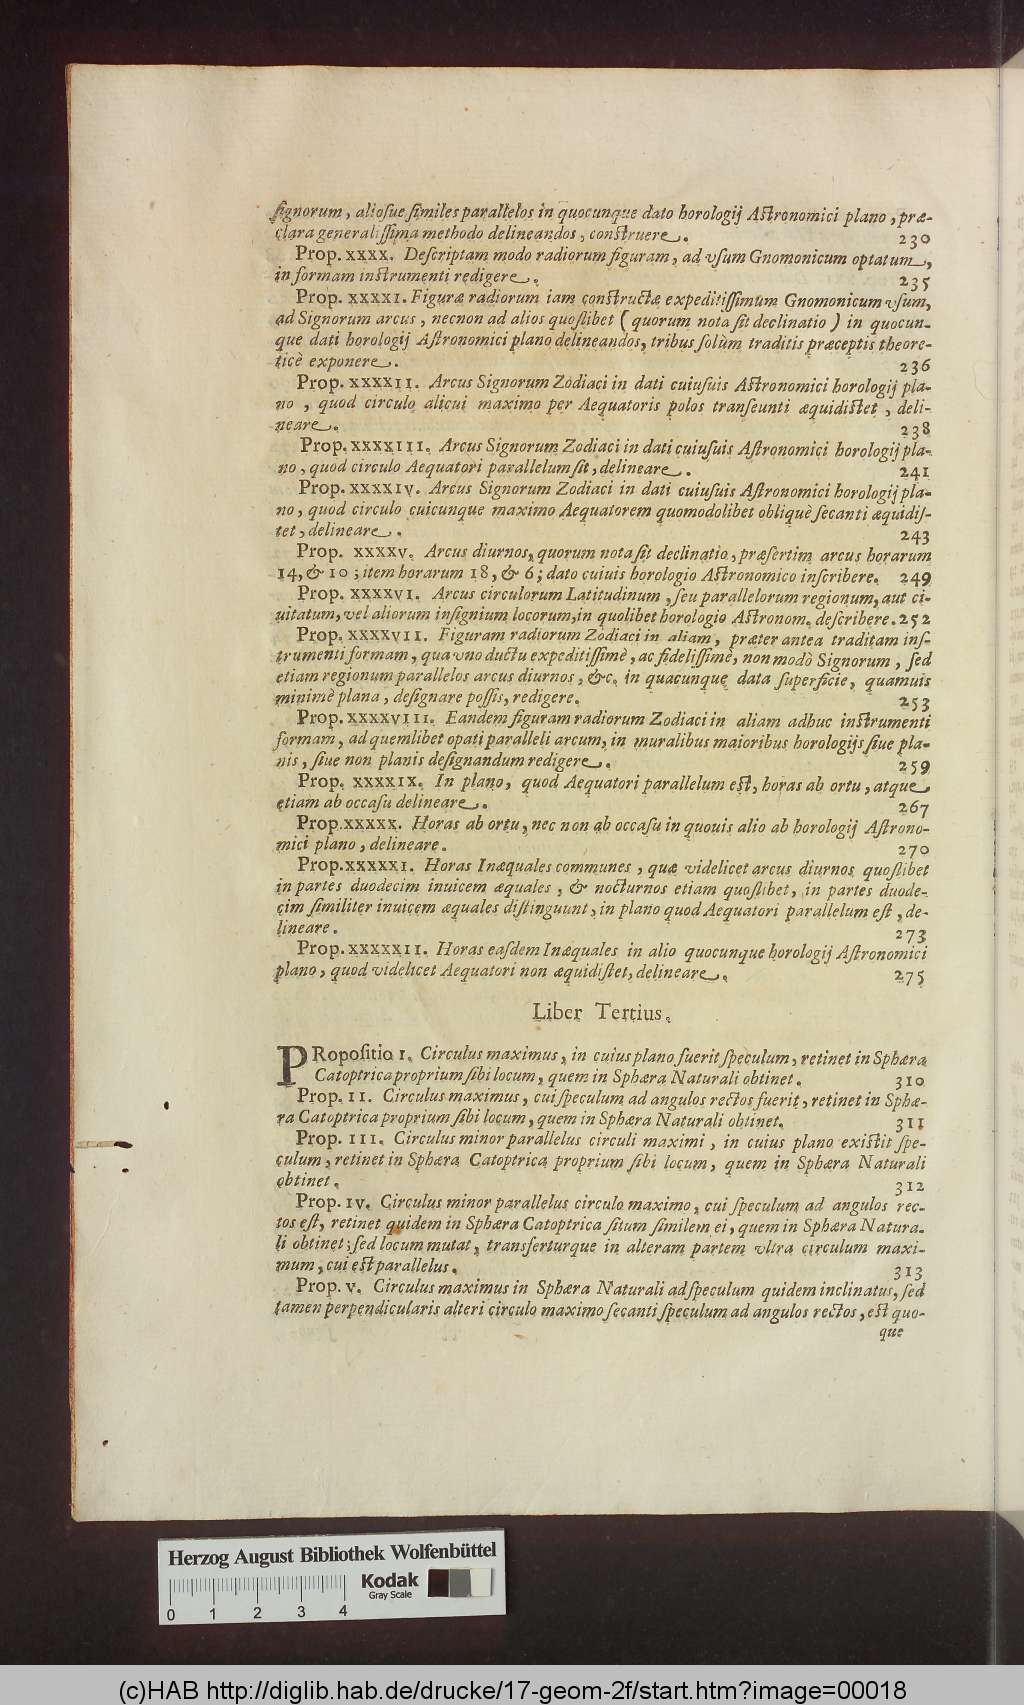 ſignorum, alioſue ſimiles parallelos in quocunque dato horologij Aſtronomici plano, præ-
clara generaliſſima methodo delineandos, conſtruere. 230
Prop. XXXX. Deſcriptam modo radiorum figuram, ad vſum Gnomonicum optatum,
in formam inſtrumenti redigere. 235
Prop. XXXXI. Figuræ radiorum iam conſtructæ expeditiſſimum Gnomonicum vſum,
ad Signorum arcus, necnon ad alios quoſlibet (quorum nota ſit declinatio) in quocun-
que dati horologij Aſtronomici plano delineandos, tribus ſolùm traditis præceptis theore-
ticè exponere. 236
Prop. XXXXII. Arcus Signorum Zodiaci in dati cuiuſuis Aſtronomici horologij pla-
no, quod circulo alicui maximo per Aequatoris polos tranſeunti æquidiſtet, deli-
neare. 238
Prop. XXXXIII. Arcus Signorum Zodiaci in dati cuiuſuis Aſtronomici horologij pla-
no, quod circulo Aequatori parallelum ſit, delineare. 241
Prop. XXXXIV. Arcus Signorum Zodiaci in dati cuiuſuis Aſtronomici horologij pla-
no, quod circulo cuicunque maximo Aequatorem quomodolibet obliquè ſecanti æquidiſ-
tet, delineare. 243
Prop. XXXXV. Arcus diurnos, quorum nota ſit declinatio, præſertim arcus horarum
14, & 10; item horarum 18, & 6; dato cuiuis horologio Aſtronomico inſcribere. 249
Prop. XXXXVI. Arcus circulorum Latitudinum, ſeu parallelorum regionum, aut ci-
uitatum, vel aliorum inſignium locorum, in quolibet horologio Aſtronom. deſcribere. 252
Prop. XXXXVII. Figuram radiorum Zodiaci in aliam, præter antea traditam inſ-
trumenti formam, qua vno ductu expeditiſſimè, ac fideliſſimè, non modò Signorum, ſed
etiam regionum parallelos arcus diurnos, &c. in quacunque data ſuperficie, quamuis
minimè plana, deſignare poſſis, redigere. 253
Prop. XXXXVIII. Eandem figuram radiorum Zodiaci in aliam adhuc inſtrumenti
formam, ad quemlibet opati paralleli arcum, in muralibus maioribus horologijs ſiue pla-
nis, ſiue non planis deſignandum redigere. 259
Prop. XXXXIX. In plano, quod Aequatori parallelum eſt, horas ab ortu, atque
etiam ab occaſu delineare. 267
Prop. XXXXX. Horas ab ortu, nec non ab occaſu in quouis alio ab horologij Aſtrono-
mici plano, delineare. 270
Prop. XXXXXI. Horas Inæquales communes, quæ videlicet arcus diurnos quoſlibet
in partes duodecim inuicem æquales, & nocturnos etiam quoſlibet, in partes duode-
cim ſimiliter inuicem æquales diſtinguunt, in plano quod Aequatori parallelum eſt, de-
lineare. 273
Prop. XXXXXII. Horas eaſdem Inæquales in alio quocunque horologij Aſtronomici
plano, quod videlicet Aequatori non æquidiſtet, delineare. 275
Liber Tertius.
PRopoſitio I. Circulus maximus, in cuius plano fuerit ſpeculum, retinet in Sphæra
Catoptrica proprium ſibi locum, quem in Sphæra Naturali obtinet. 310
Prop. II. Circulus maximus, cui ſpeculum ad angulos rectos fuerit, retinet in Sphæ-
ra Catoptrica proprium ſibi locum, quem in Sphæra Naturali obtinet. 311
Prop. III. Circulus minor parallelus circuli maximi, in cuius plano exiſtit ſpe-
culum, retinet in Sphæra Catoptrica proprium ſibi locum, quem in Sphæra Naturali
obtinet. 312
Prop. IV. Circulus minor parallelus circulo maximo, cui ſpeculum ad angulos rec-
tos eſt, retinet quidem in Sphæra Catoptrica ſitum ſimilem ei, quem in Sphæra Natura-
li obtinet; ſed locum mutat, tranſferturque in alteram partem vltra circulum maxi-
mum, cui eſt parallelus. 313
Prop. V. Circulus maximus in Sphæra Naturali ad ſpeculum quidem inclinatus, ſed
tamen perpendicularis alteri circulo maximo ſecanti ſpeculum ad angulos rectos, eſt quo-
que
Herzog August Bibliothek Wolfenbüttel
Kodak
Gray Scale
0 1 2 3 4
(c)HAB http://diglib.hab.de/drucke/17-geom-2f/start.htm?image=00018